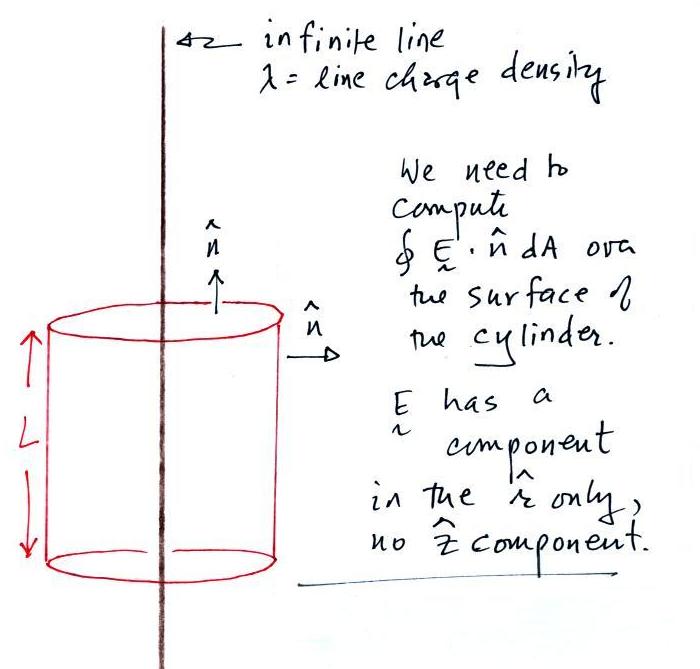 infinite line
λ = line charge density
We need to
compute
∮ E · n̂ dA over
the surface of
the cylinder.
E has a
component
in the r̂ only,
no ẑ component.
n̂
n̂
L